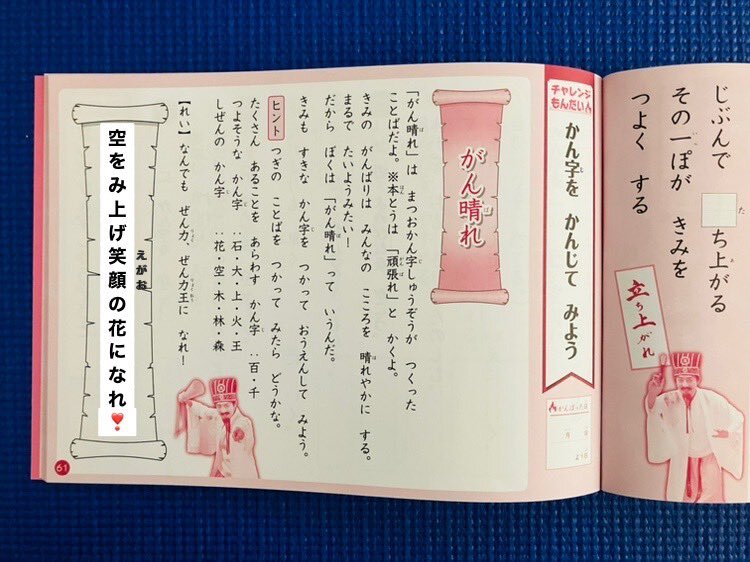 じぶんで □ち上がる
その一ぽが きみを
つよく する
立ち上がれ
チャレンジ
もんだい
かん字を かんじて みよう
がんばった日
月 日
よう日
がん晴れ
「がん晴れ」は まつおかん字しゅうぞうが つくった
ことばだよ。※本とうは「頑張れ」と かくよ。
きみの がんばりは みんなの こころを 晴れやかに する。
まるで たいようみたい！
だから ぼくは 「がん晴れ」って いうんだ。
きみも すきな かん字を つかって おうえんして みよう。
ヒント つぎの ことばを つかって みたら どうかな。
たくさん あることを あらわす かん字 ：百・千
つよそうな かん字 ：石・大・上・火・王
しぜんの かん字 ：花・空・木・林・森
【れい】なんでも ぜん力、ぜん力王に なれ！
空をみ上げ笑顔の花になれ❣️
えがお
61